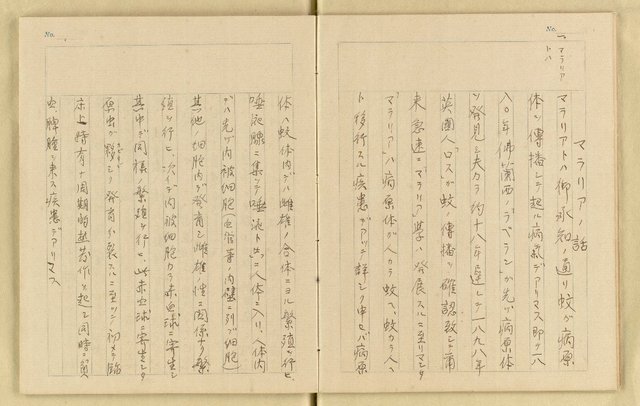 No.
「マラリア」トハ
マラリアノ話
マラリアトハ御承知ノ通リ蚊が病原
体ヲ傳播シテ起ル病氣デアリマス即チ一八
八〇年佛蘭西ノ「ラベラン」が先ヅ病原体
ヲ発見シ夫カラ約十八年遅レテ一八九八年
英國人「ロス」が蚊ノ傳播ヲ確認致シテ
来急速ニ「マラリア」学ハ発展スルニ至リマシタ
「マラリア」ハ病原体が人カラ蚊ヘ、蚊カラ人ヘ
ト移行スル疾患デアッテ詳シク申セバ病原
No.
体ハ蚊体内デハ雌雄ノ合体ニヨル繁殖ヲ行ヒ
唾液腺ニ集リテ唾液ト共ニ人体ニ入リ、人体内
デハ先ヅ内被細胞(血管等ノ内壁ニ列ブ細胞)
其他ノ細胞内デ発育シ雌雄性ニ関係ナク繁
殖ヲ行ヒ、次イデ内被細胞カラ赤血球ニ寄生シ
其中デ同様繁殖ヲ行ヒ、此赤血球ニ寄生シタ
原虫が発育分裂スルニ至ッテ初メテ臨
床上特有ナ周期的熱発作ヲ起シ同時ニ貧
血脾腫ヲ来ス疾患デアリマス